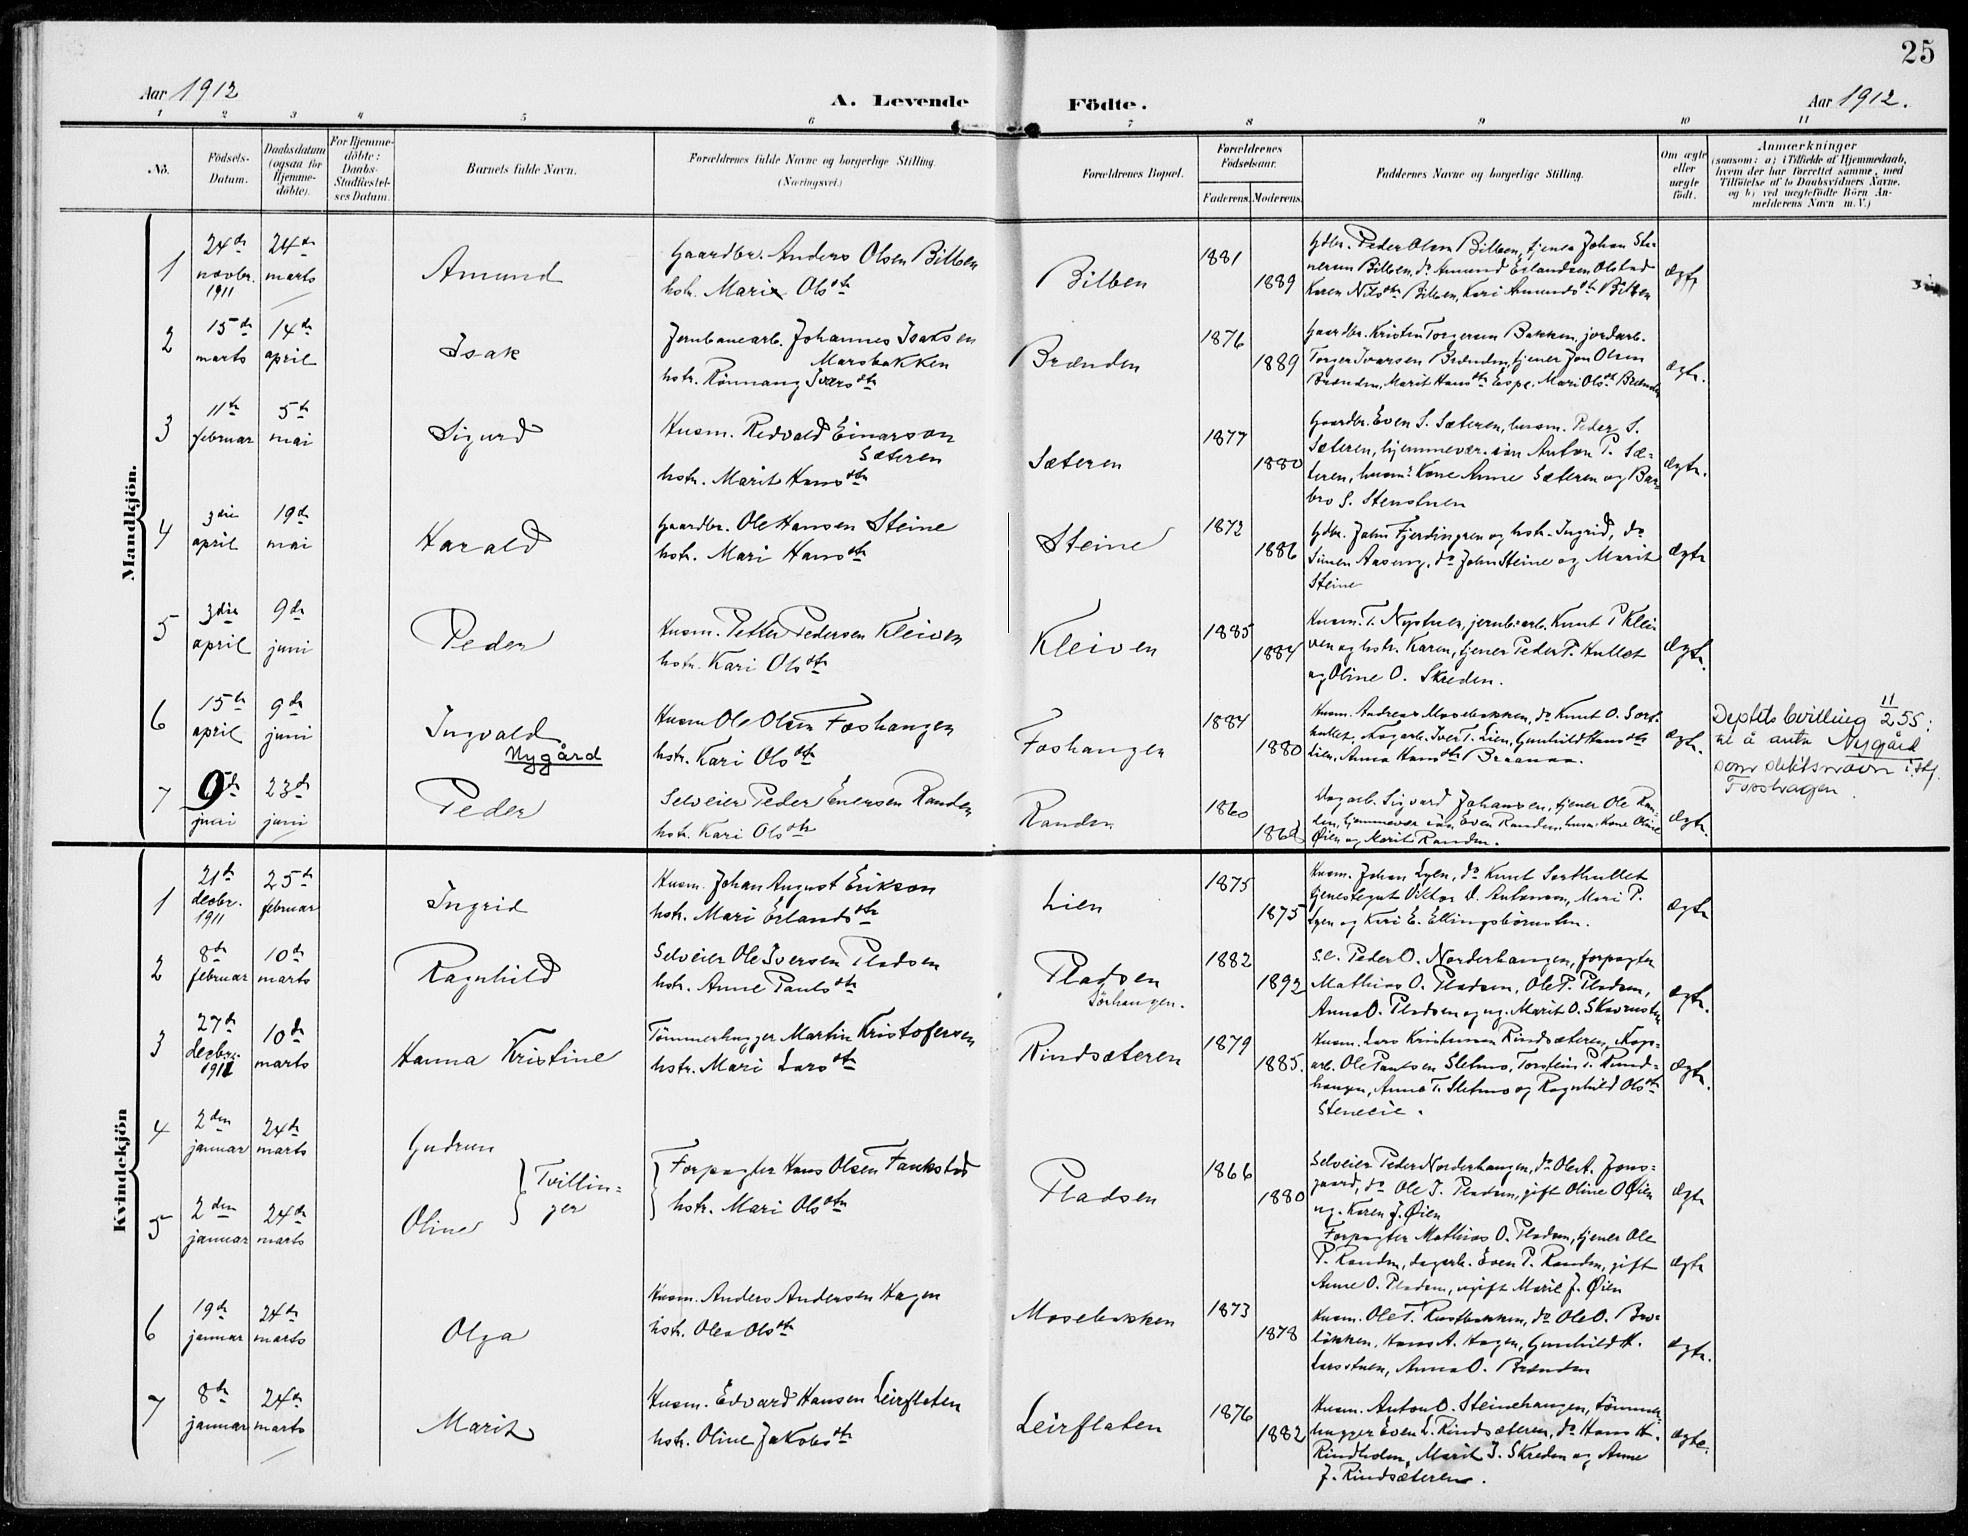 25
Aar 1912
A. Levende
Födte.
Aar 1912.
1 2 3 4 5 6 7 8 9 10 11
No.
Födsels-
Datum.
Daabsdatum
(ogsaa for
Hjemme-
döbte).
For Hjemme-
döbte:
Daabs-
Stadfæstel-
ses Datum.
Barnets fulde Navn.
Forældrenes fulde Navne og borgerlige Stilling.
(Næringsvei.)
Forældrenes Bopæl.
Forældrenes
Födselsaar.
Faderens. Moderens.
Faddernes Navne og borgerlige Stilling.
Om ægte
eller
uægte
födt.
Anmærkninger
(saasom: a) i Tilfælde af Hjemmedaab,
hvem der har forrettet samme, med
Tilföielse af to Daabsvidners Navne,
og b) ved uægtefödte Börn An-
melderens Navn m. V.)
Mandkjön.
1
24de
novbr.
1911
24de
marts
Amund
Gaardbr. Anders Olsen Bilben
hstr. Mari Olsdtr
Bilben
1881
1889
Gdbr. Peder Olsen Bilben, tjener Johan Ste-
nersen Bilben, do Amund Erlandsen Olstad
Karen Nilsdtr Bilben, Kari Amundsdtr Bilben
ægte
2
15de
marts
14de
april
Isak
Jernbanearb. Johannes Isaksen
Marsbakken
hstr. Rönnaug Iversdtr
Brænden
1876
1889
Gaardbr. Kristen Torgersen Bakken, jordarb.
Torger Ivarsen Brænden, tjener Jon Olsen
Brænden, Marit Hansdtr Espe, Mari Olsdtr Brænden
ægte.
3
11te
februar
5te
mai
Sigurd
Husm. Redvald Einarson
Sæteren
hstr. Marit Hansdtr
Sæteren
1877
1880
Gaardbr. Even S. Sæteren, husm. Peder S.
Sæteren, hjemmevær. sön Anton P. Sæ-
teren, husms Kone Anne Sæteren og Bar-
bro S. Stenstuen
ægte.
4
3die
april
19de
mai
Harald
Gaardbr. Ole Hansen Steine
hstr. Mari Hansdtr
Steine
1872
1886
Gdbr. John Fjerdingren og hstr. Ingrid, do
Simen Aaseng, do John Steine og Marit
Steine
ægte
5
3die
april
9de
juni
Peder
Husm. Petter Pedersen Kleiven
hstr. Kari Olsdtr
Kleiven
1885
1884
Husm. T. Nystuen, jernb.arb. Knut P. Klei-
ven og hstr. Karen, tjener Peder T. Hullet
og Oline O. Skreden.
ægte.
6
15de
april
9de
juni
Ingvald
Nygård
Husm Ole Olsen Foshangen
hstr. Kari Olsdtr
Foshangen
1884
1880
Husm. Andreas Mosebakken, do Knut O. Sort-
hullet, dagarb. Iver T. Lien, Gunhild Hansdtr
Lien, Anna Hansdtr Braanaa.
ægte.
Deptets bevilling 11/2 55:
til å anta Nygård
som slektsnavn i stf.
7
9de
juni
23de
juni
Peder
Selveier Peder Enersen Randen
hstr. Kari Olsdtr
Randen
1860
1868
Dagarb. Sigvard Johansen, tjener Ole Ran-
den, hjemmevær. sön Even Randen, husm. Kone Oline
Öien og Marit Randen.
ægte.
Kvindekjön
1
21de
decbr.
1911
25de
februar
Ingrid
Husm. Johan August Erikson
hstr. Mari Erlandsdtr
Lien
1875
1875
Husm. Johan Lyen, do Knut Sorthullet
tjenestegut Viktor O. Antonson, Mari P.
Lyen og Kari E. Ellingsbörnsten.
ægte
2
8de
februar
10de
marts
Ragnhild
Selveier Ole Iversen Pladsen
hstr. Anne Paulsdtr
Pladsen
Sörhangen.
1882
1892
s.e. Peder O. Norderhangen, forpagter
Mathias O. Pladsen, Ole P. Pladsen,
Anna O. Pladsen og ug. Marit O. Skavrusten
ægte.
3
27de
decbr.
1911
10de
marts
Hanna Kristine
Tömmerhugger Martin Kristofersen
hstr. Mari Larsdtr
Rindsæteren
1879
1885.
Husm. Lars Kristensen Rindsæteren, dags-
arb. Ole Paulsen Sletmo, Torstein P. Rind-
hangen, Anna T. Sletmo og Ragnhild Olsdtr
Steneeie.
ægte.
4
2den
januar
24de
marts
Gudrun
5
2den
januar
24de
marts
Oline
Tvillin-
ger
Forpagter Hans Olsen Faukstad
hstr. Mari Olsdtr
Pladsen
1866
1880
Selveier Peder Norderhangen, do Ole A. Jons-
gaard, do Ole I. Pladsen, gift Oline O Öien
ug. Karen J. Öien
ægte
Forpagter Mathias O. Pladsen, tjener Ole
P. Randen, dagarb. Even P. Randen, gift
Anne O. Pladsen, ugift Marie J. Öien
ægte
6
19de
januar
24de
marts
Olga
Husm. Anders Andersen Hagen
hstr. Olea Olsdtr
Mosebakken
1873
1878
Husm. Ole T. Rustbakken, do Ole O. Bro-
lökken, Hans A. Hagen, Gunhild H.
Larsstuen, Anna O. Brænden
ægte.
7
8de
januar
24de
marts
Marit
Husm. Edvard Hansen Leirflaten
hstr. Oline Jakobsdtr
Leirflaten
1876
1882
Husm. Anton O. Steinehangen, tömmer-
hugger Even L. Rindsæteren, do Hans H.
Rindholen, Marit I. Skreden og Anne
J. Rindsæteren.
ægte.